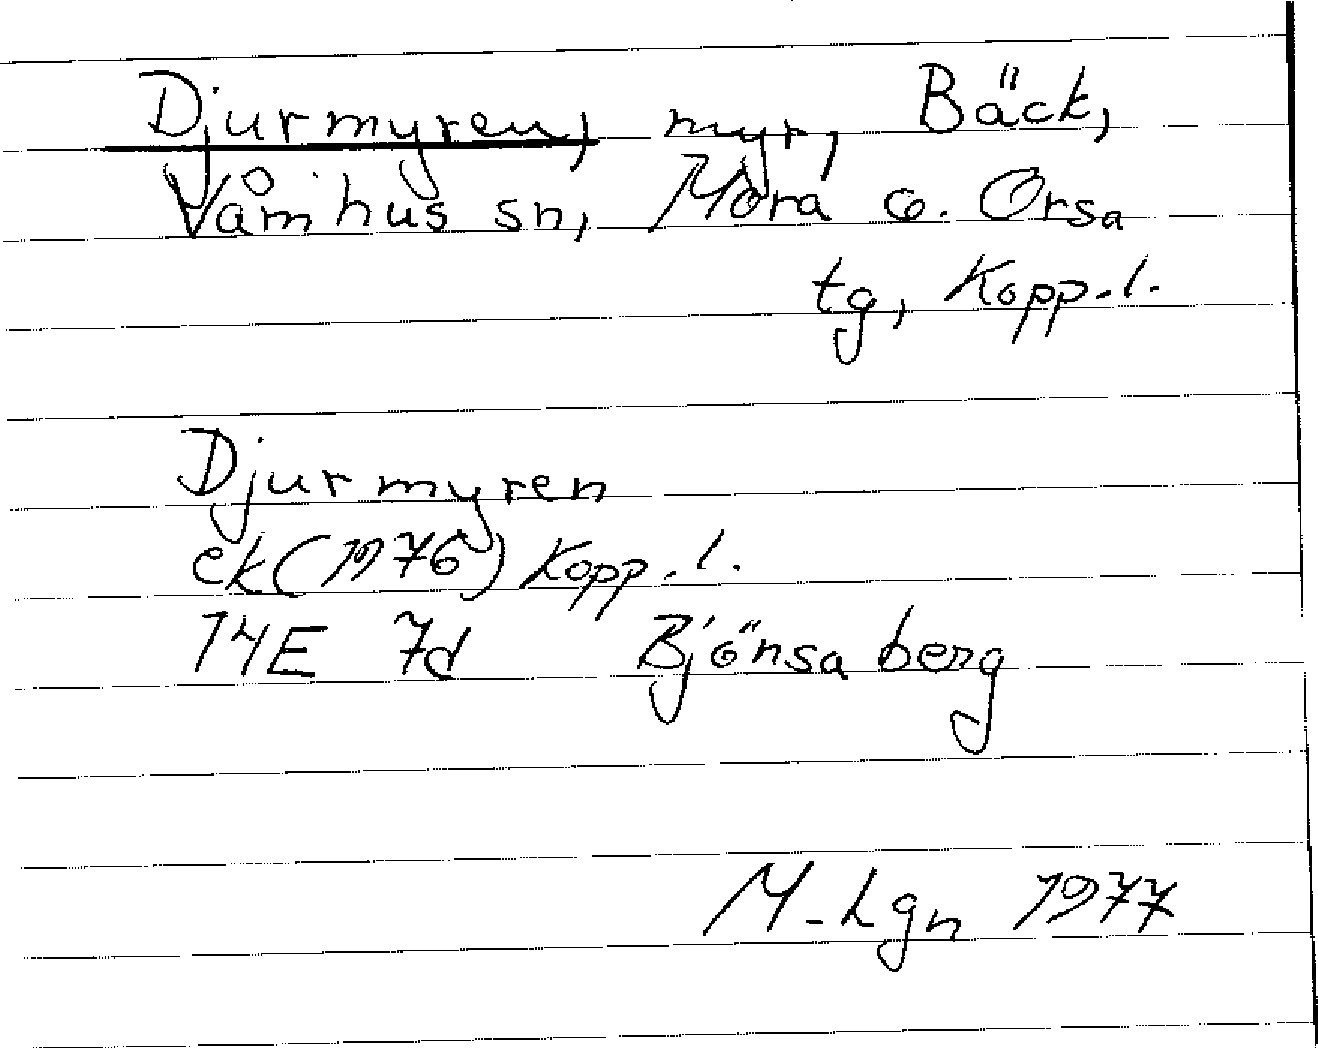 Djurmyren, myr, Bäck,
Våmhus sn, Mora o. Orsa
tg, Kopp.l.
Djurmyren
ek (1976) Kopp.l.
14E 7d Björnsaberg
M-Lgn 1977